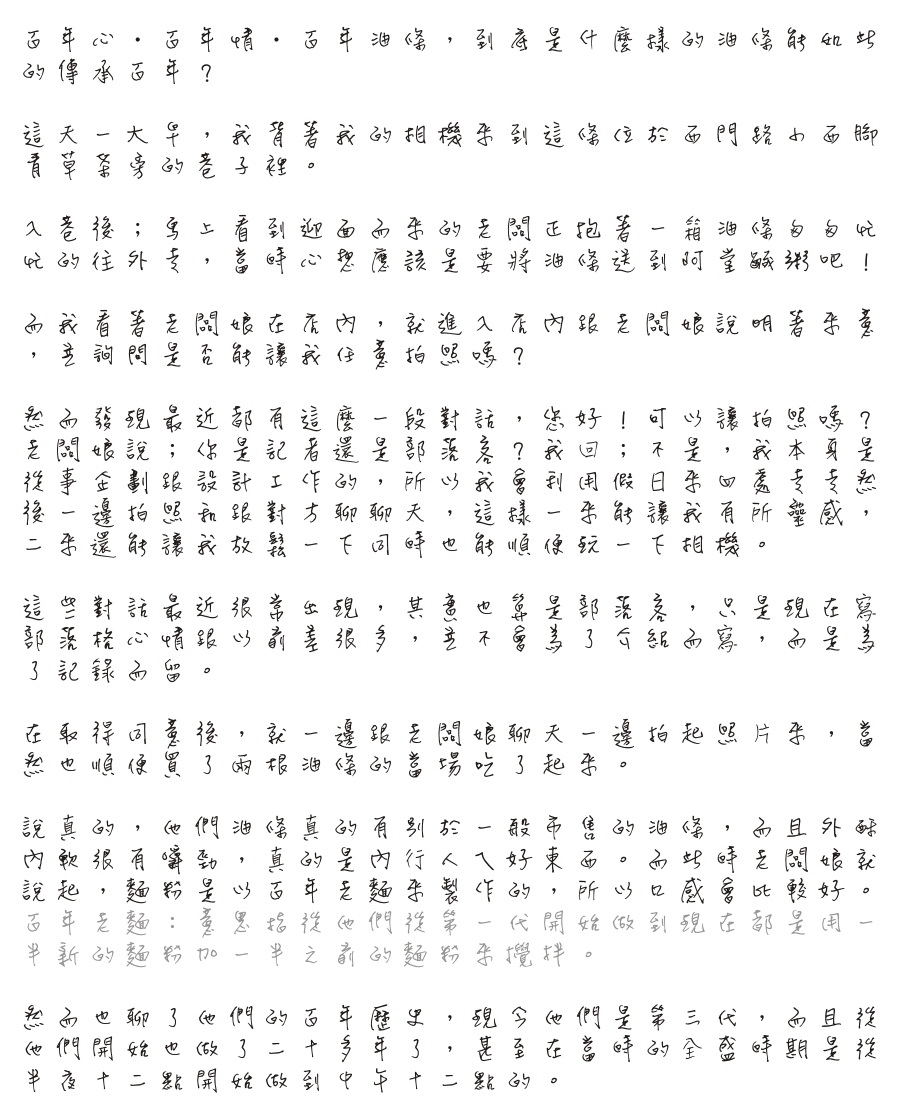 百年心・百年情・百年油條，到底是什麼樣的油條能如此
的傳承百年？
這天一大早，我背著我的相機來到這條位於西門路小西腳
青草茶旁的巷子裡。
入巷後；馬上看到迎面而來的老闆正抱著一箱油條匆匆忙
忙的往外走，當時心想應該是要將油條送到阿堂鹹粥吧！
而我看著老闆娘在店內，就進入店內跟老闆娘說明著來意
，並詢問是否能讓我任意拍照嗎？
然而發現最近都有這麼一段對話，您好！可以讓拍照嗎？
老闆娘說；你是記者還是部落客？我回；不是，我本身是
從事企劃跟設計工作的，所以我會利用假日來四處走走然
後一邊拍照和跟對方聊聊天，這樣一來能讓我有所靈感，
二來還能讓我放鬆一下同時也能順便玩一下相機。
這些對話最近很常出現，其實也算是部落客，只是現在寫
部落格心情跟以前差很多，並不會為了介紹而寫，而是為
了記錄而留。
在取得同意後，就一邊跟老闆娘聊天一邊拍起照片來，當
然也順便買了兩根油條的當場吃了起來。
說真的，他們油條真的有別於一般市售的油條，而且外酥
內軟很有嚼勁，真的是內行人ㄟ好東西。而此時老闆娘就
說起，麵粉是以百年老麵來製作的，所以口感會比較好。
百年老麵：意思指從他們從第一代開始做到現在都是用一
半新的麵粉加一半之前的麵粉來攪拌。
然而也聊了他們的百年歷史，現今他們是第三代，而且從
他們開始也做了二十多年了，甚至在當時的全盛時期是從
半夜十二點開始做到中午十二點的。